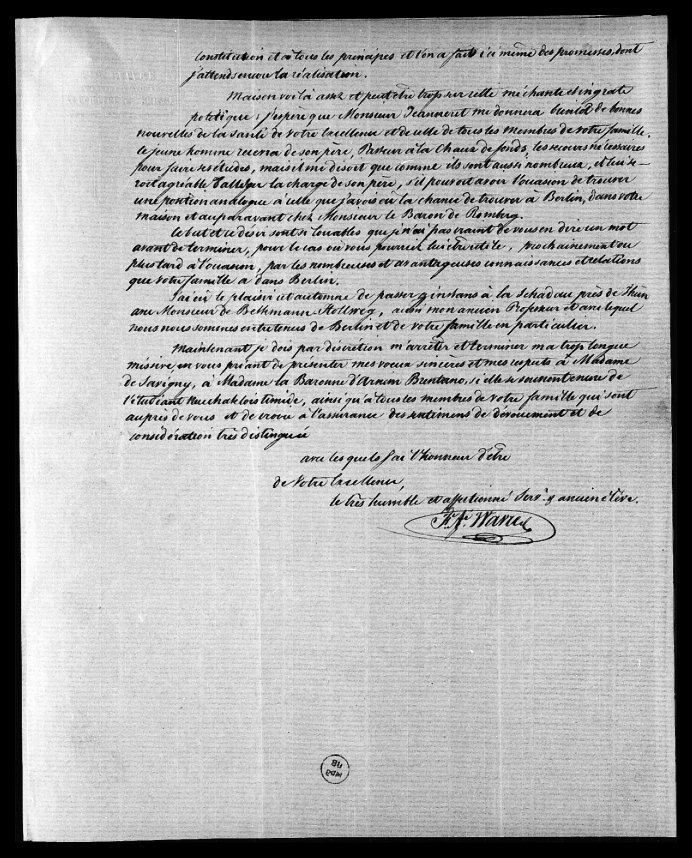 Constitution et à tous les principes et l'on a fait ici même des promesses, dont
j'attends encore la réalisation.
Mais en voilà assez et peut être trop sur cette méchante et ingrate
politique : j'espère que Monsieur Jeanneret me donnera bientôt de bonnes
nouvelles de la santé de votre Excellence et de celle de tous les membres de votre famille.
Ce jeune homme recevra de son père, Pasteur à la Chaux de fonds, les secours nécessaires
pour faire ses études, mais il me disoit que comme ils sont aussi nombreux, et lui se-
roit agréable d'alléger la charge de son père, s'il pouvoit avoir l'occasion de trouver
une position analogue à celle que j'avois eu la chance de trouver à Berlin, dans votre
maison et auparavant chez Monsieur le Baron de Romberg.
Ce but et ce désir sont si louables que je n'ai pas craint de vous en dire un mot
avant de terminer, pour le cas où vous pourriez lui être utile, prochainement ou
plus tard à l'occasion, par les nombreuses et avantageuses connaissances et relations
que votre famille a dans Berlin.
J'ai eu le plaisir cet automne de passer qq instans à la Schadau près de Thun
avec Monsieur de Bethmann Hollweg, aussi mon ancien Professeur et avec lequel
nous nous sommes entretenus de Berlin et de votre famille en particulier.
Maintenant je dois par discrétion m'arrêter et terminer ma trop longue
missive, en vous priant de présenter mes vœux sincères et mes respects à Madame
de Savigny, à Madame la Baronne d'Arnim Brentano, si elle se souvient encore de
l'étudiant Neuchatelois timide, ainsi qu'à tous les membres de votre famille qui sont
auprès de vous et de croire à l'assurance des sentimens de dévouement et de
considération très distinguée
avec lesquels j'ai l'honneur d'être
de Votre Excellence,
le très humble et affectionné Serv. & ancien élève.